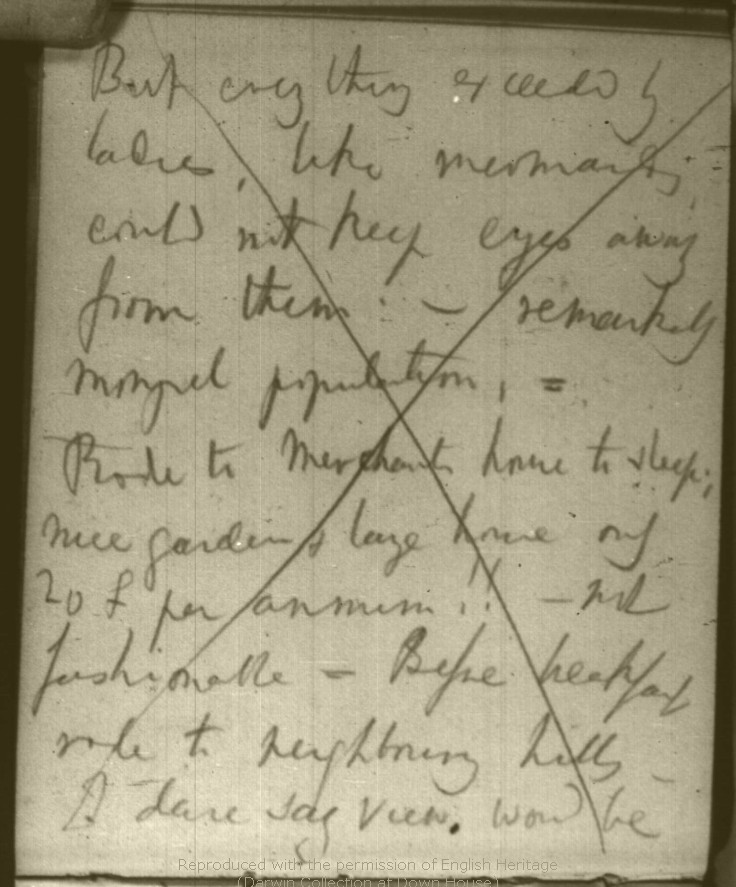 But every thing exceeded by
ladies, like mermaids,
could not keep eyes away
from them: — remarkably
mongrel population, =
Rode to Merchants house to sleep;
nice garden & large house only
20 £ per annum!! — not
fashionable — Before breakfast
rode to neighbouring hills —
I dare say view. would be
Reproduced with the permission of English Heritage
(Darwin Collection at Down House)